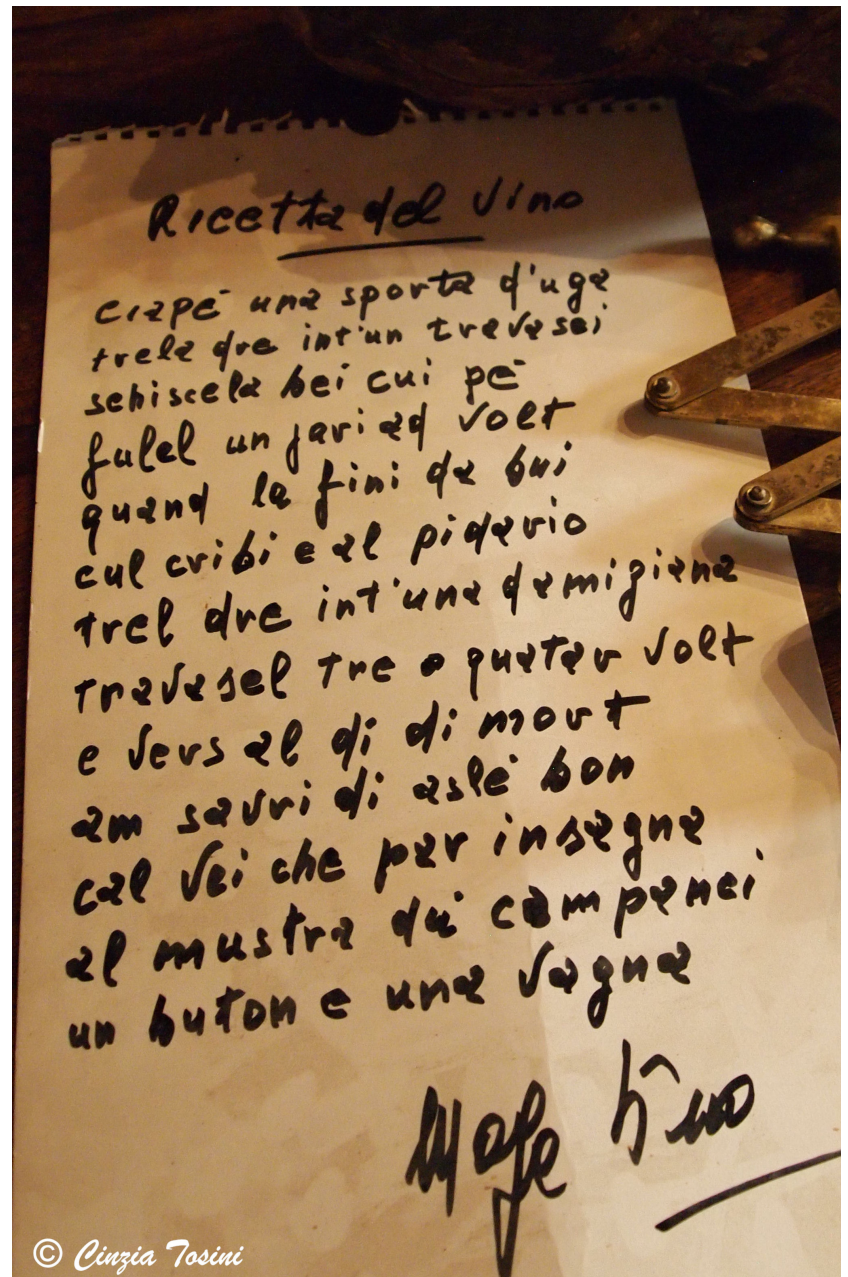 Ricetta del vino
ciapé una sporta d'uga
trela dre int'un travasei
schiscela bei cui pé
fulel un pari ad volt
quand la fini da bui
cul cribi e al pidario
trel dre int'una damigiana
travasel tre o quatar volt
e vers al di di mort
am savri di aslé bon
cal vei che par insagna
al mustra du campanei
un buton e una vagna
© Cinzia Tosini